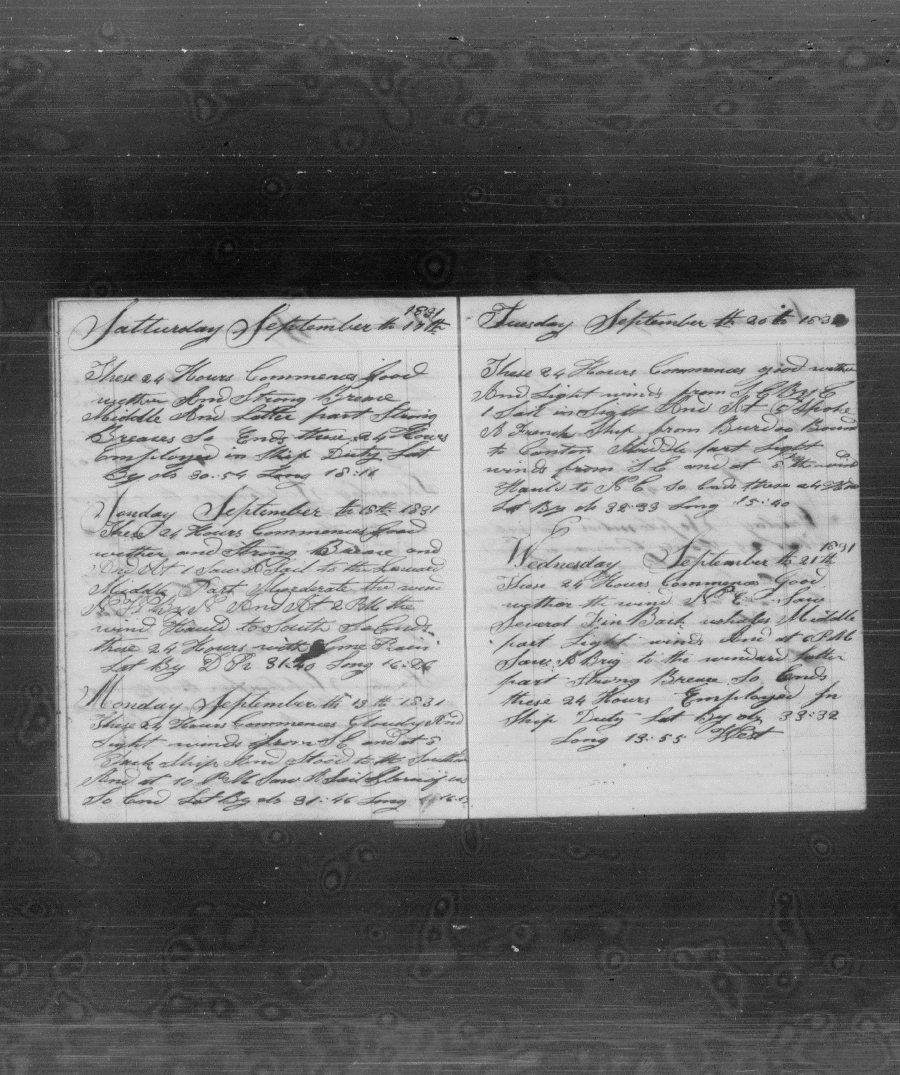 Satturday September th 17th 1831
These 24 Hours Commences Good
wether And Strong Brease
Middle And Latter part Strong
Breases So Ends these 24 Hours
Employed in Ship Duty Lat
By ob 30.54 Long 18:11
Monday September th 18th 1831
These 24 Hours Commences Good
wether and Strong Brease and
At 1 Saw A Sail to the
Middle Part Morderate the wind
By N And At 2 PM the
wind Hauld to South So Ends
these 24 Hours with Some Rain
Lat By D R 31:40 Long 16:26
Monday September th 19th 1831
These 24 Hours Commences Cloudy And
Light winds from SE and at 5
Tack Ship And Stood to the
And at 10 PM Saw A Sail
So End Lat By ob 31:46 Long
Tuesday September th 20th
These 24 Hours Commences good wether
And Light winds from S E By E
1 Sail in Sight And At 5 Spoke
A French Ship from Burdao Bound
to Canton Middle part Light
winds from S E and at 5 the wind
Hauld to N E So Ends these 24 Hours
Lat By ob 32:33 Long 15:40
Wednesday September th 21th 1831
These 24 Hours Commences Good
wether the wind N E Saw
Several Fin Back whales Middle
part Light winds And at 6 PM
Saw A Brig to the windard Latter
part Strong Brease So Ends
these 24 Hours Employed In
Ship Duty Lat By ob 33:32
Long 13:55 West